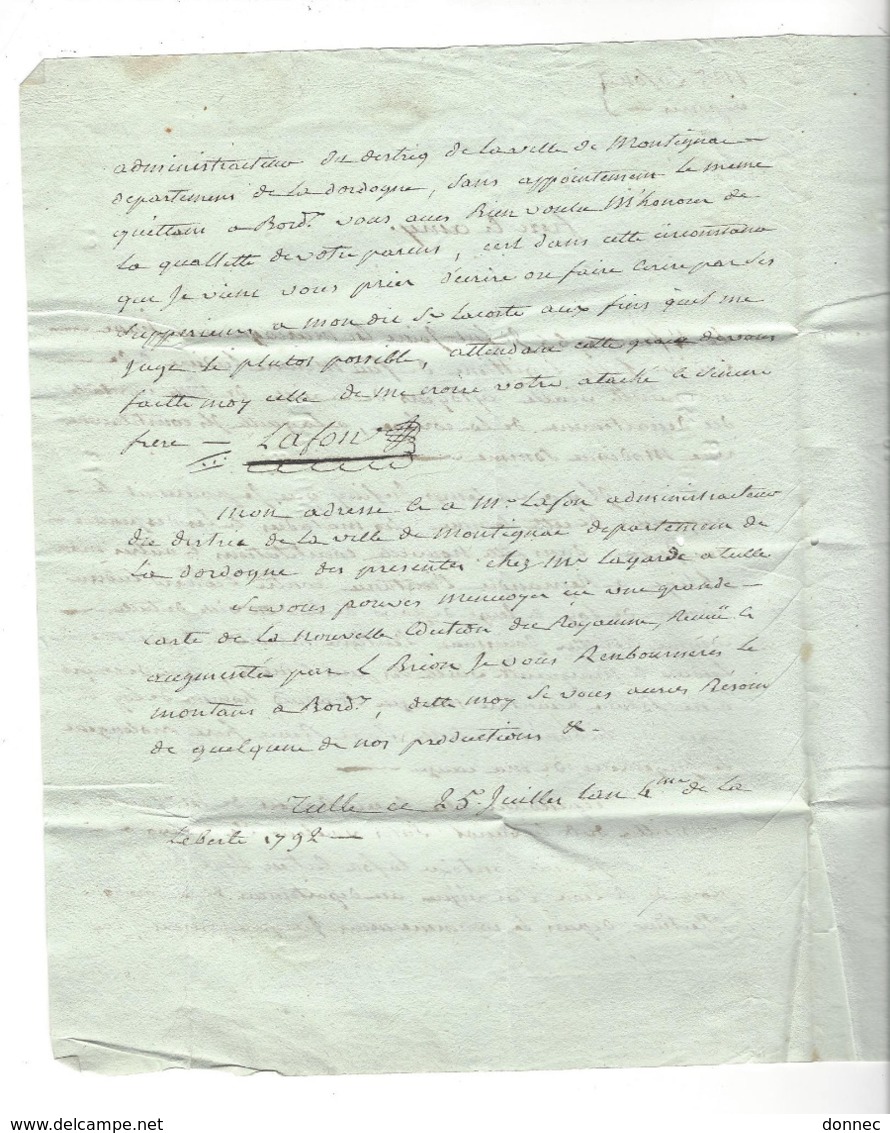 administrateur du destriq de la ville de Montignac —
departement de la dordogne, sans appointement le meme
quettant a Bord.x vous aves Bien voulu m'honorer de
La quallette de votre parens, c'est dans cette circonstance
que Je viens vous prier d'Ecrire ou faire Ecrire par Ses
Suppérieurs a mon dit Sr Lacoste aux fins qu'il me
Juge le plutos possible, attendant cette grace de vous
faitte moy celle de me croire votre ataché & Sincere
frere — Lafon
mon adresse Est a Mr Lafon administrateur
du distric de la ville de Montignac departement de
La dordogne des presentes chez Mr Lagarde a tulle
Si vous pouves m'envoyer ici une grande —
carte de la nouvelle Edition du Royaume, Revuë &
augmentée par L Brion Je vous Rembourserés le
montans a Bord.x, ditte moy Si vous aures Besoin
de quelqu'une de nos productions &.
Tulle ce 25 Juillet l'an 4me de La
Leberté 1792 —
delcampe.net
donnec